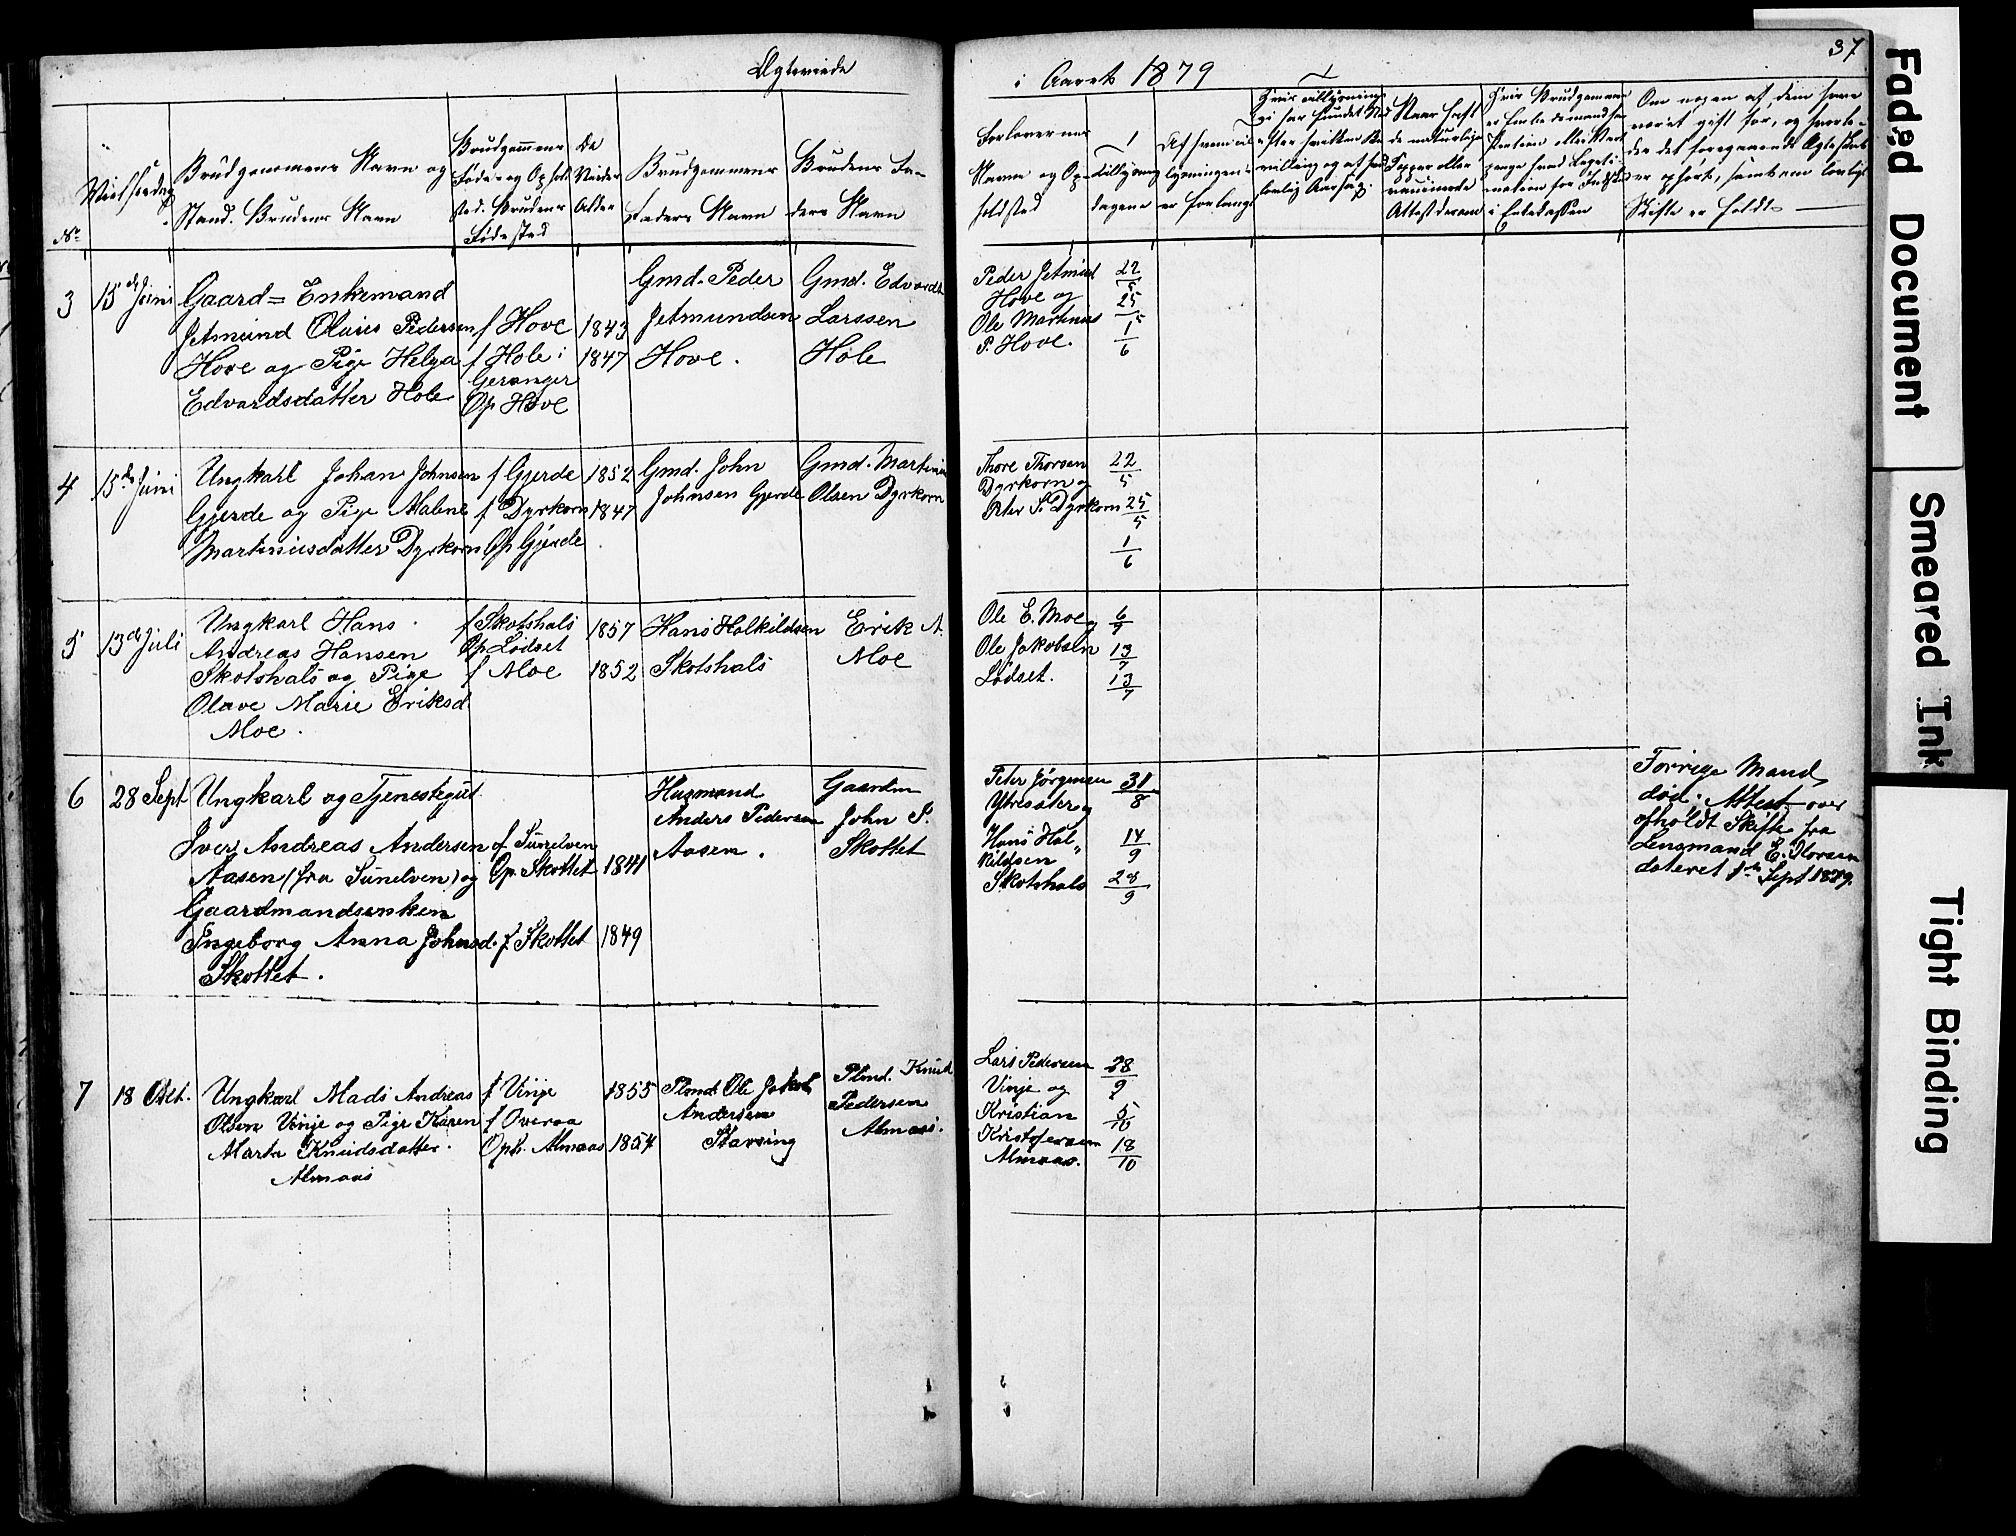 Ægteviede
i Aaret 1879
37
No
Vielsesdag
Brudgommens Navn og
Stand. Brudens Navn
Brudgommens
Føde- og Opholds
sted. Brudens
Fødested
De
Vieder
Alder
Brudgommens
Faders Navn
Brudens Fa-
ders Navn
Forlovernes
Navn og Op-
holdsted
Tillysnings
dagene
Af hvem til-
lysningen
er forlangt
Naar haft
de naturlige
Kopper eller
vaccinerede
Attest derom
Om nogen af dem have
været gift før, og hvorle-
des det foregaaende Ægteskab
er ophørt, samt om lovligt
Skifte er holdt
3
15de Juni
Gaard= Enkemand
Jetmund Oluies Pedersen
Hove og Pige Helga
Edvardsdatter Hole
f Hove
f Hole i
Geranger
Op Hove
1843
1847
Gmd. Peder
Jetmundsen
Hove.
Gmd. Edvardt
Larssen
Hole
Peder Jetmund
Hove og
Ole Martinus
P. Hove.
22/5
25/5
1/6
4
15de Juni
Ungkarl Johan Johnsen
Gjerde og Pige Malene
Martinusdatter Dyrkorn
f Gjerde
f Dyrkorn
Op Gjerde
1852
1847
Gmd. John
Johnsen Gjerde
Gmd. Martinus
Olsen Dyrkorn
Thore Thorsen
Dyrkorn og
Peter S. Dyrkorn
22/5
25/5
1/6
5
13de Juli
Ungkarl Hans
Andreas Hansen
Skotshals og Pige
Olave Marie Eriksd
Moe.
f Skotshals
Op Lødset
f Moe
1857
1852
Hans Halkildsen
Skotshals
Erik A.
Moe
Ole E. Moe og
Ole Jakobsen
Lødset.
6/7
13/7
13/7
6
28 Sept
Ungkarl og Tjenestegut
Iver Andreas Andersen
Aasen (fra Sunelven) og
Gaardmandsenken
Ingeborg Anna Johnsd.
Skottet.
f Sunelven
Op. Skottet
f Skottet
1841
1849
Husmand
Anders Pedersen
Aasen.
Gaardm
John S.
Skottet
Peter Jørgensen
Ytresæter og
Hans Hal„
kildsen
Skotshals
31/8
14/9
28/9
Forrige Mand
død. Attest over
afholdt Skifte fra
Lensmand E. Korsen
dateret 1ste Sept 1879.
7
18 Okt.
Ungkarl Mads Andreas
Olsen Vinje og Pige Karen
Marta Knudsdatter
Almaas
f Vinje
f Overaa
Oph. Almaas
1855
1854
Plmd. Ole Jakob
Andersen
Stavsing
Plmd. Knud
Pedersen
Almaas.
Lars Pedersen
Vinje og
Kristian
Kristofersen
Almaas.
28/9
5/10
18/10
Faded Document
Smeared Ink
Tight Binding